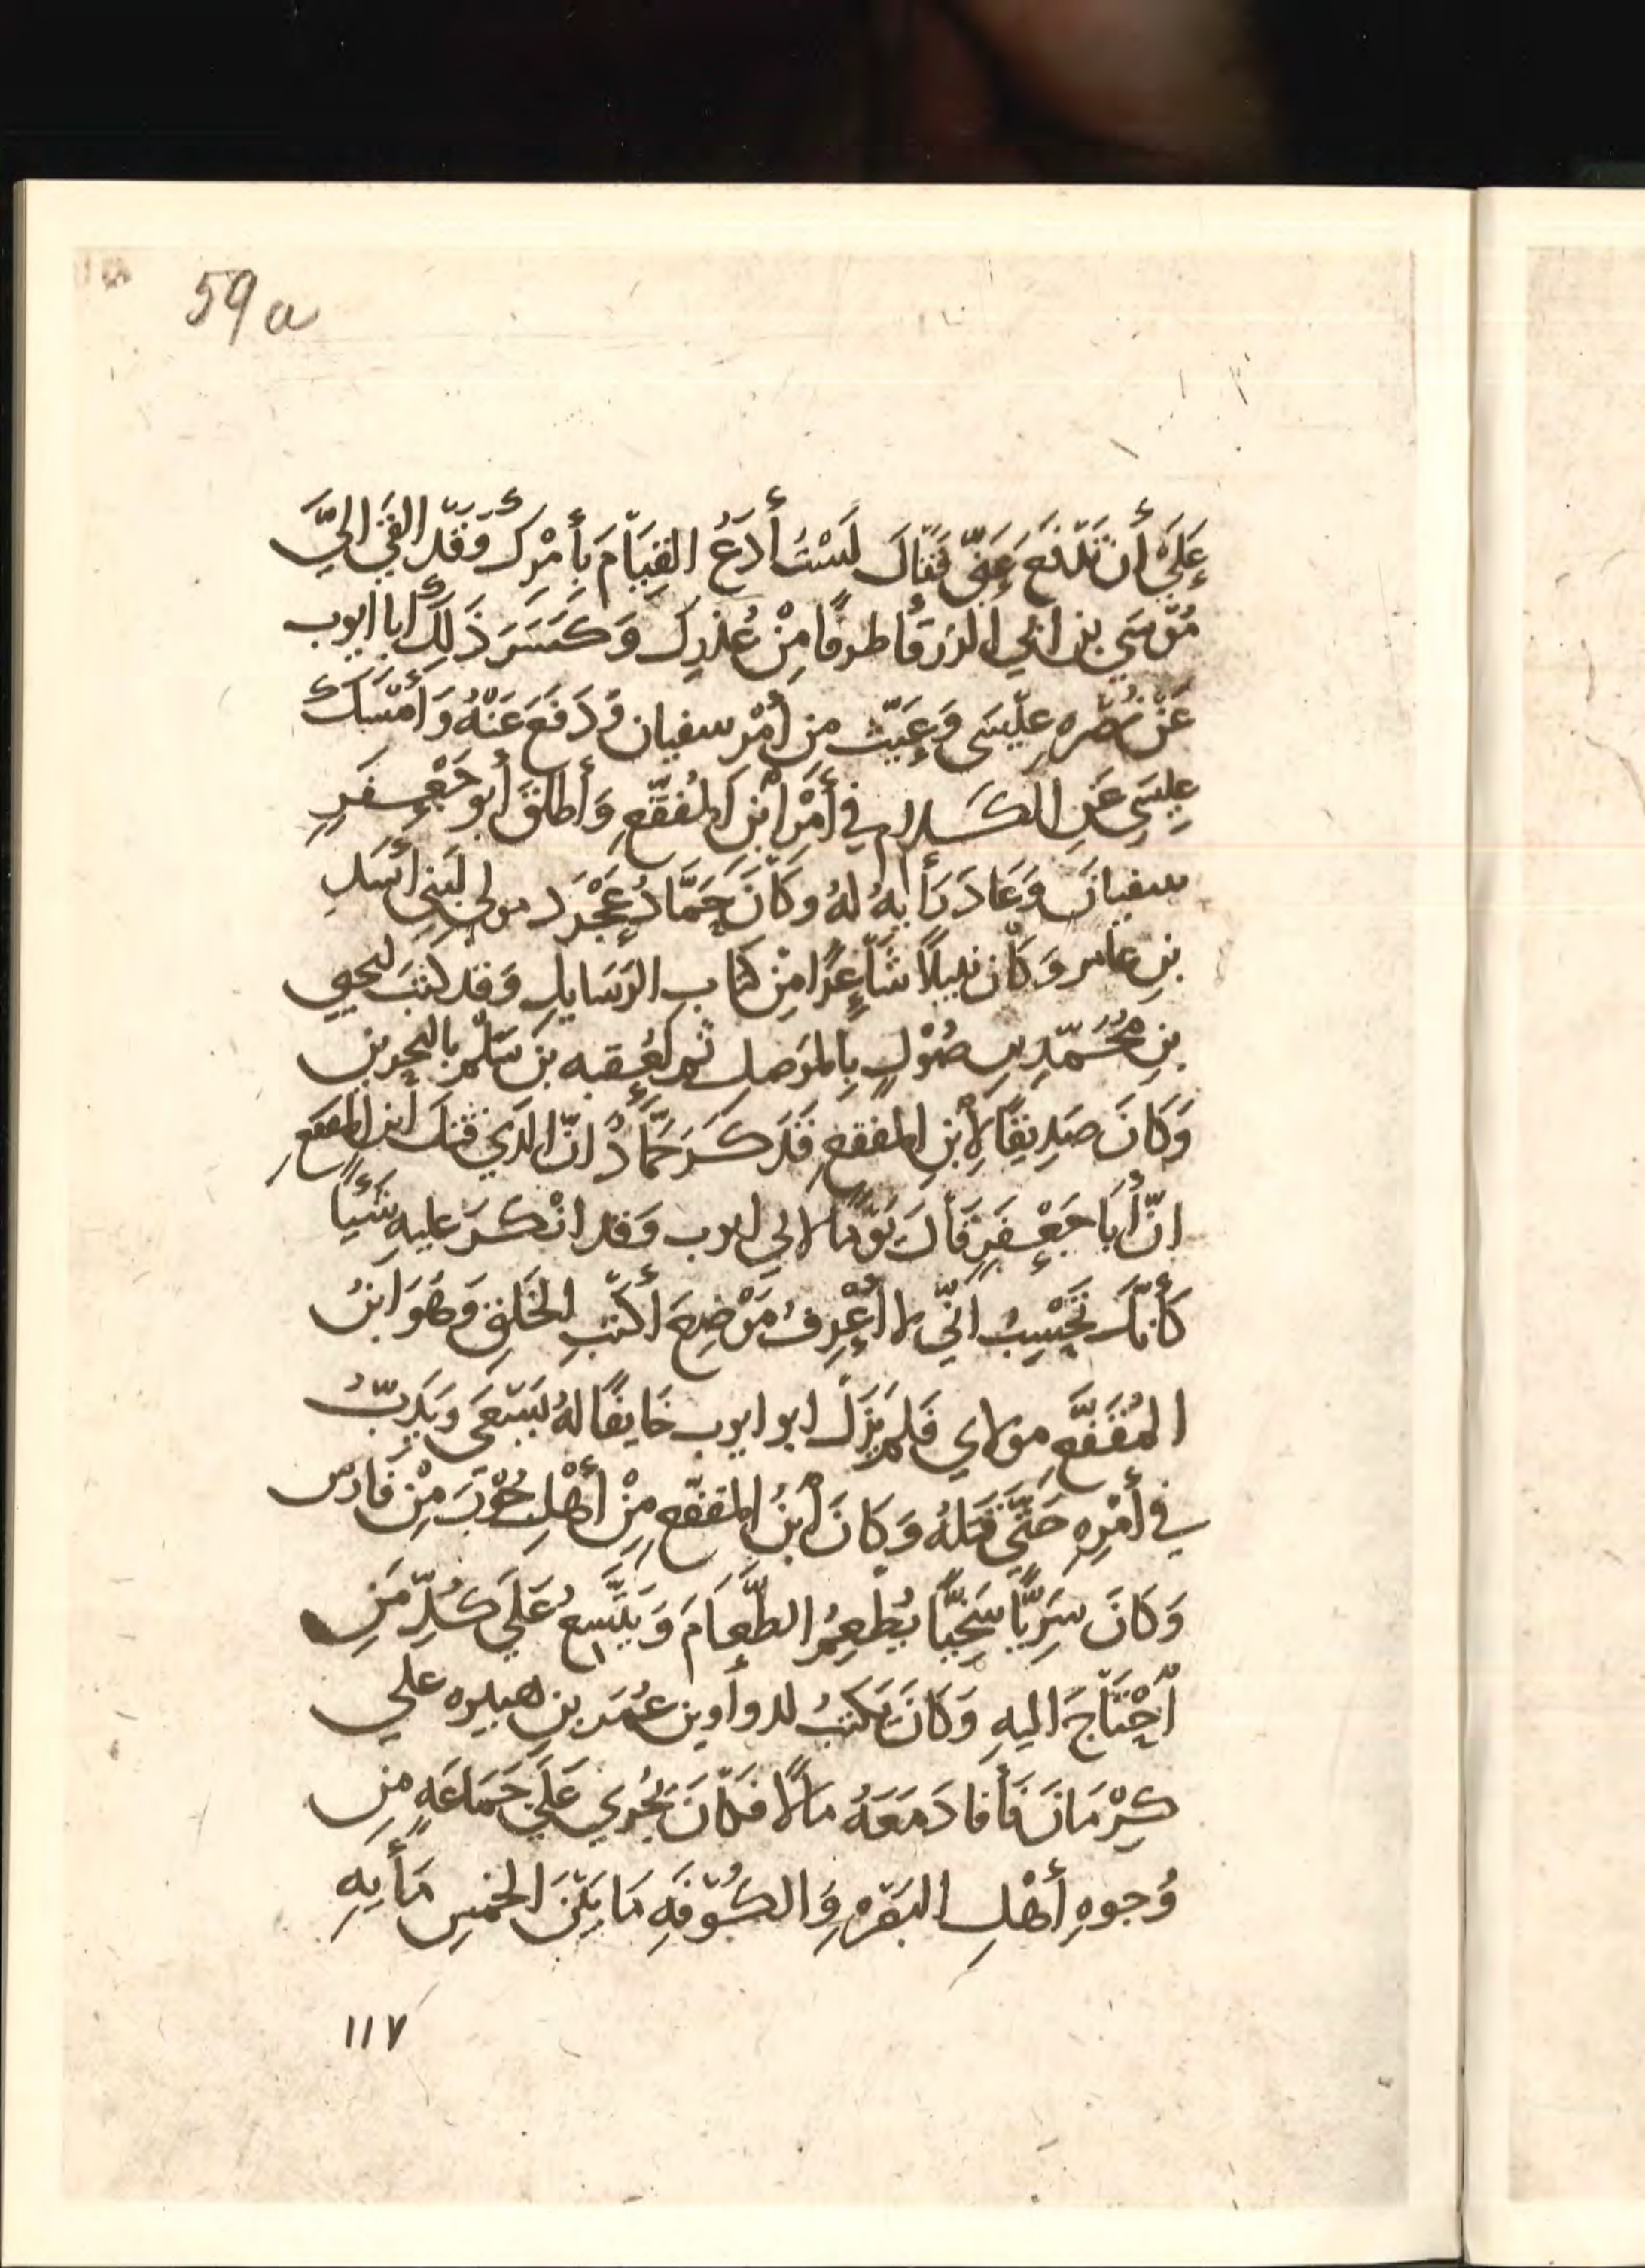 59a
عَلَيَّ أَن تَدْفَعَ عَنّي فَقَالَ لَسْتُ أَدَعُ القِيَامَ بِأَمْرِكَ وَقَدْ القَي اليَّ
مُوسَي بن ابي الزرقا طرفًا مِنْ عُذرِكَ وَكَسَرَ ذَلِكَ أبا ايوب
عَنْ نُصْرهِ عِيسَى وَعِيّبَ مِن أَمْر سفيان وَدَفَعَ عَنْهُ وَأمْسَكَ
عِيسَي عَنِ الكَلام في أَمْر ابْنِ المُقفّعِ وَأَطلَقَ أَبو جَعْفَرٍ
سفيانَ وَعَادَ رَأيهُ لهُ وكَانَ حَمَّادُ عَجْرَد مولي لبَنِي أسَدِ
بنِ عامر وَكَان نبيلًا شَاعِرًا مِنْ كتاب الرَسَايلِ وَقد كتبَ ليحيي
بنِ مُحُمّدِ بنِ صُوْلٍ بِالمَوصل ثم لعُقبه بن سَلْم بالبحرين
وَكَانَ صَدِيقًا لِأبْنِ المقفعِ فَذَكَرَ حَمَّادُ انّ الذي قتلَ ابن المقفعِ
انّ أَبَا جَعْفَرٍ قَالَ يَوْمًا لابي ايوب وَقد انْكَرَ عليهِ شَيْئًا
كَأَنّكَ تَحْسِبُ انّي لا أَعْرِفُ مَوْضِعَ أكتَبِ الخَلقِ وَهْوَ ابنُ
المُقَفَّعِ مولاي فَلم يَزَل ابو ايوب خَايفًا لهُ يَسْعَى وَيَدِبّ
في أَمْرِهِ حَتّي قتَلهُ وَكَانَ أبْنُ المقفّعِ مِنْ أَهْلِ حُوْبَ مِنْ فَارسَ
وَكَانَ سَرِيًّا سَخِيًّا يُطْعِمُ الطَّعَامَ وَيَتَّسِعُ عَلَي كُلِّ مَنِ
أحْتَاجَ اليهِ وَكَانَ يَكتبُ لدواوين عُمَر بنِ هبيره علي
كِرْمَانَ فَأفادَ مَعَهُ مالًا فكانَ يُجْرِي عَلَي جَمَاعَةٍ مِن
وُجوهِ أَهْلِ البَصْره وَالكُوْفَهِ مَا بَيْنَ الخمسِ مَأيهِ
١١٧